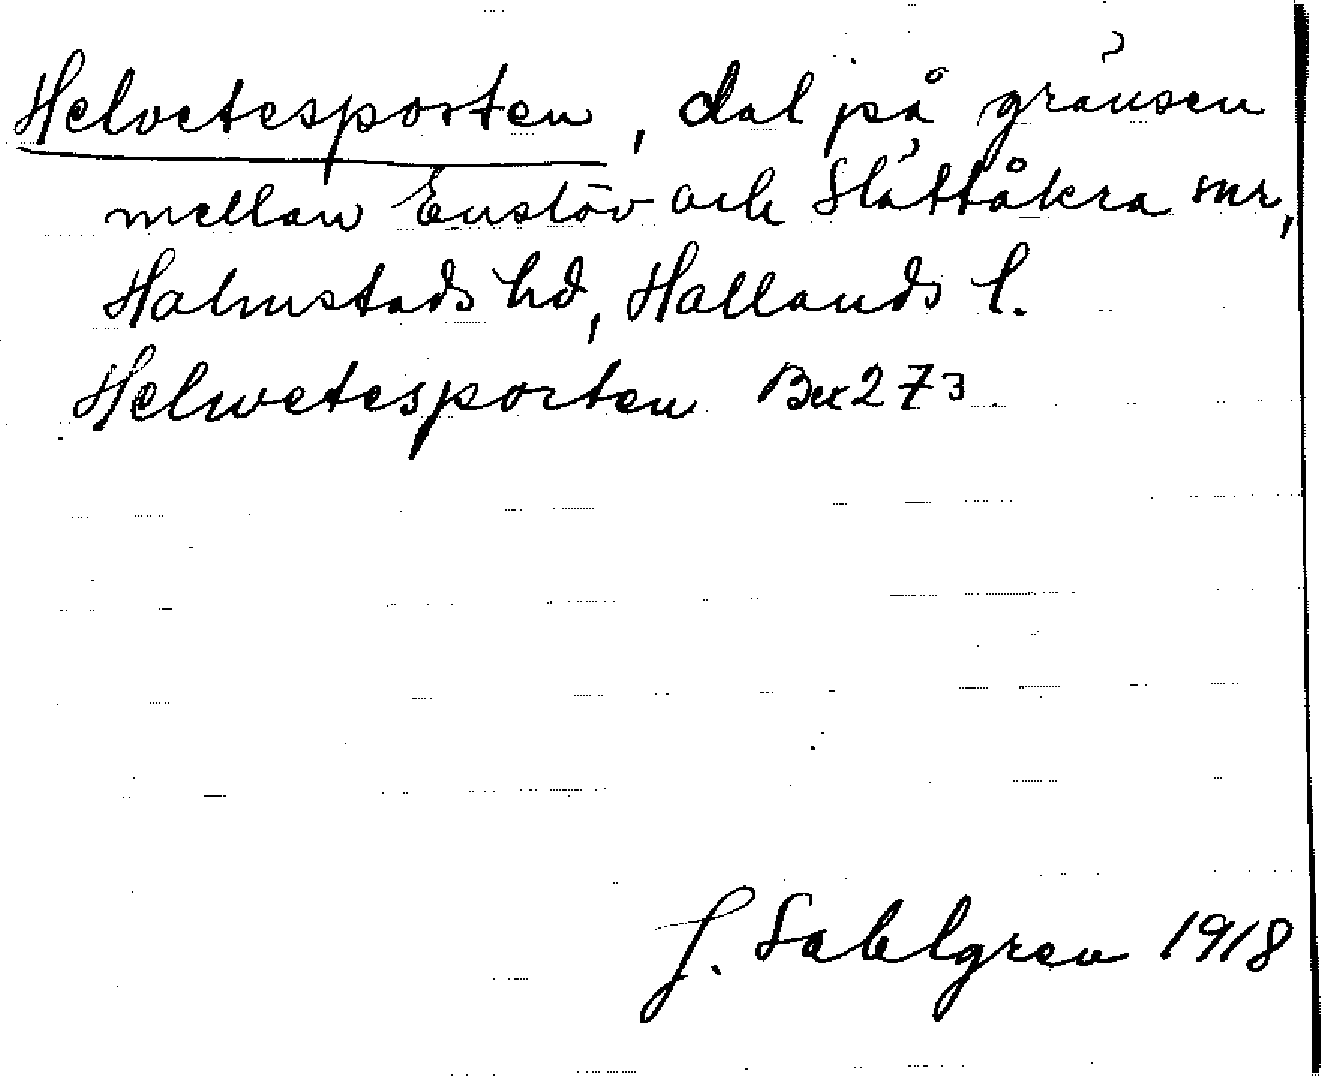 Helvetesporten, dal på gränsen
mellan Enslöv och Slättåkra snr,
Halmstads hd, Hallands l.
Helwetesporten Bex 273
J. Sahlgren 1918